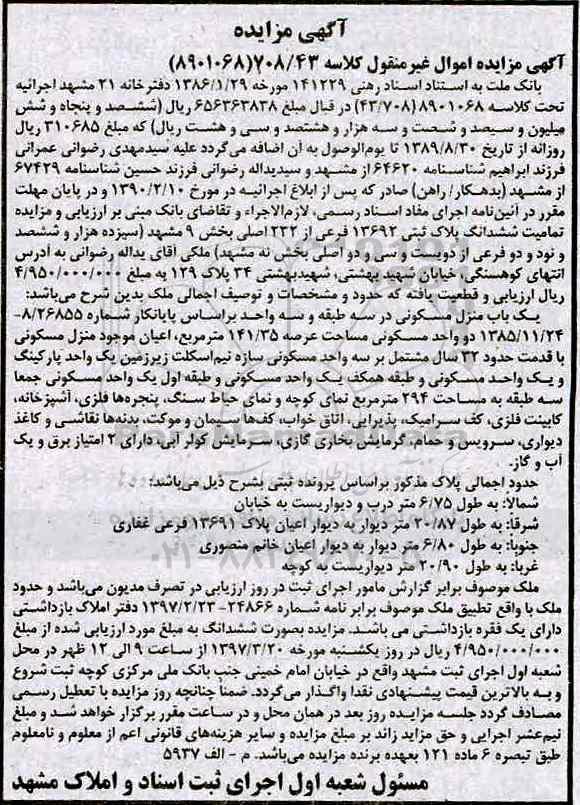 آگهی مزایده
آگهی مزایده اموال غیرمنقول کلاسه ۷۰۸/۴۳(۸۹۰۱۰۶۸)
بانک ملت به استناد اسناد رهنی ۱۴۱۲۲۹ مورخه ۱۳۸۶/۱/۲۹ دفترخانه ۲۱ مشهد اجرائیه
تحت کلاسه ۸۹۰۱۰۶۸ (۴۳/۷۰۸) در قبال مبلغ ۶۵۶۳۶۳۸۳۸ ریال (ششصد و پنجاه و شش
میلیون و سیصد و شصت و سه هزار و هشتصد و سی و هشت ریال) که مبلغ ۳۱۰۶۸۵ ریال
روزانه از تاریخ ۱۳۸۹/۸/۳۰ تا یوم‌الوصول به آن اضافه می‌گردد علیه سیدمهدی رضوانی عمرانی
فرزند ابراهیم شناسنامه ۶۴۶۲۰ از مشهد و سیدیداله رضوانی فرزند حسین شناسنامه ۶۷۴۲۹
از مشهد (بدهکار/ راهن) صادر که پس از ابلاغ اجرائیه در مورخ ۱۳۹۰/۲/۱۰ و در پایان مهلت
مقرر در آئین‌نامه اجرای مفاد اسناد رسمی، لازم‌الاجراء و تقاضای بانک مبنی بر ارزیابی و مزایده
تمامیت ششدانگ پلاک ثبتی ۱۳۶۹۲ فرعی از ۲۳۲ اصلی بخش ۹ مشهد (سیزده هزار و ششصد
و نود و دو فرعی از دویست و سی و دو اصلی بخش نه مشهد) ملکی آقای یداله رضوانی به آدرس
انتهای کوهسنگی، خیابان شهید بهشتی، شهیدبهشتی ۳۴ پلاک ۱۲۹ به مبلغ ۴/۹۵۰/۰۰۰/۰۰۰
ریال ارزیابی و قطعیت یافته که حدود و مشخصات و توصیف اجمالی ملک بدین شرح می‌باشد:
یک باب منزل مسکونی در سه طبقه و سه واحد براساس پایانکار شماره ۸/۲۶۸۵۵-
۱۳۸۵/۱۱/۲۴ دو واحد مسکونی مساحت عرصه ۱۴۱/۳۵ مترمربع، اعیان موجود منزل مسکونی
با قدمت حدود ۳۲ سال مشتمل بر سه واحد مسکونی سازه نیم‌اسکلت زیرزمین یک واحد پارکینگ
و یک واحد مسکونی و طبقه همکف یک واحد مسکونی و طبقه اول یک واحد مسکونی جمعا
سه طبقه به مساحت ۲۹۴ مترمربع نمای کوچه و نمای حیاط سنگ، پنجره‌ها فلزی، آشپزخانه،
کابینت فلزی، کف سرامیک، پذیرایی، اتاق خواب، کف‌ها سیمان و موکت، بدنه‌ها نقاشی و کاغذ
دیواری، سرویس و حمام، گرمایش بخاری گازی، سرمایش کولر آبی، دارای ۲ امتیاز برق و یک
آب و گاز.
حدود اجمالی پلاک مذکور براساس پرونده ثبتی بشرح ذیل می‌باشند:
شمالا: به طول ۶/۷۵ متر درب و دیواریست به خیابان
شرقا: به طول ۲۰/۸۷ متر دیوار به دیوار اعیان پلاک ۱۳۶۹۱ فرعی غفاری
جنوبا: به طول ۶/۸۰ متر دیوار به دیوار اعیان خانم منصوری
غربا: به طول ۲۰/۹۰ متر دیواریست به کوچه
ملک موصوف برابر گزارش مامور اجرای ثبت در روز ارزیابی در تصرف مدیون می‌باشد و حدود
ملک با واقع تطبیق ملک موصوف برابر نامه شماره ۲۴۸۶۶- ۱۳۹۷/۲/۲۳ دفتر املاک بازداشتی
دارای یک فقره بازداشتی می باشد. مزایده بصورت ششدانگ به مبلغ مورد ارزیابی شده از مبلغ
۴/۹۵۰/۰۰۰/۰۰۰ ریال در روز یکشنبه مورخه ۱۳۹۷/۳/۲۰ از ساعت ۹ الی ۱۲ ظهر در محل
شعبه اول اجرای ثبت مشهد واقع در خیابان امام خمینی جنب بانک ملی مرکزی کوچه ثبت شروع
و به بالاترین قیمت پیشنهادی نقدا واگذار می‌گردد. ضمناً چنانچه روز مزایده با تعطیل رسمی
مصادف گردد جلسه مزایده روز بعد در همان محل و در ساعت مقرر برگزار خواهد شد و مبلغ
نیم‌عشر اجرایی و حق مزاید زاند بر مبلغ مزایده و سایر هزینه‌های قانونی اعم از معلوم و نامعلوم
طبق تبصره ۶ ماده ۱۲۱ بعهده برنده مزایده می‌باشد. م - الف ۵۹۳۷
مسئول شعبه اول اجرای ثبت اسناد و املاک مشهد